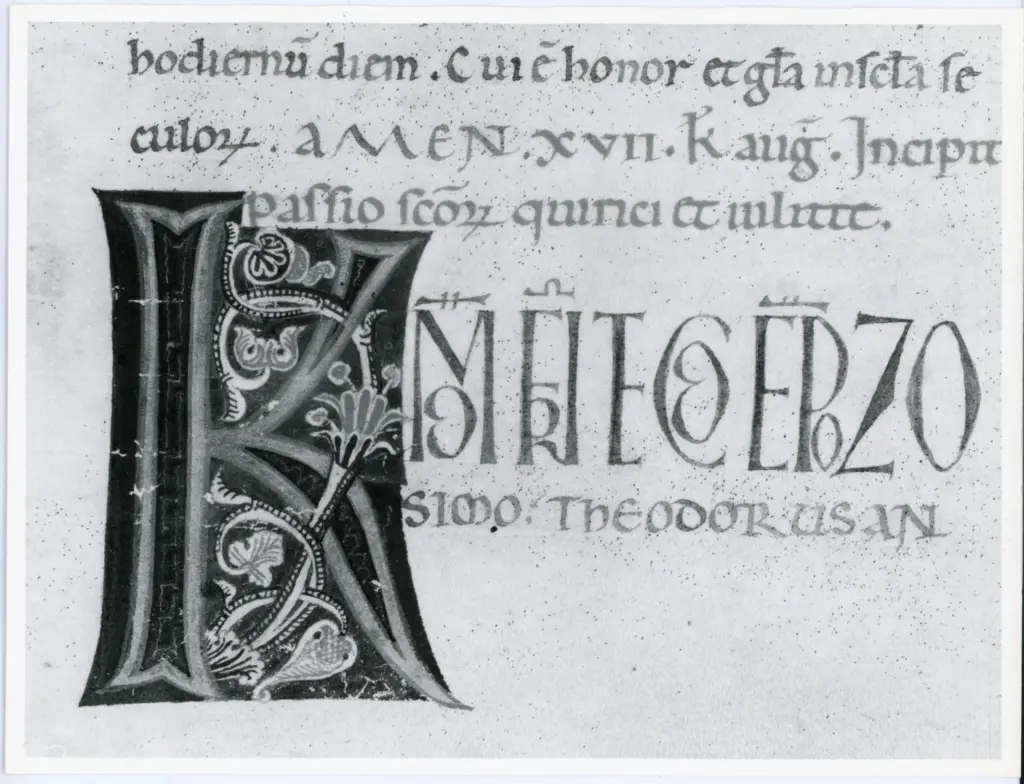 hodiernū diem . Cui ē honor et gła in scła se
culoꝝ . AMEN . xvii . k̄ auḡ . Incipit
passio scōꝝ quirici et iulitte .
SIMO : THEODORUS AN